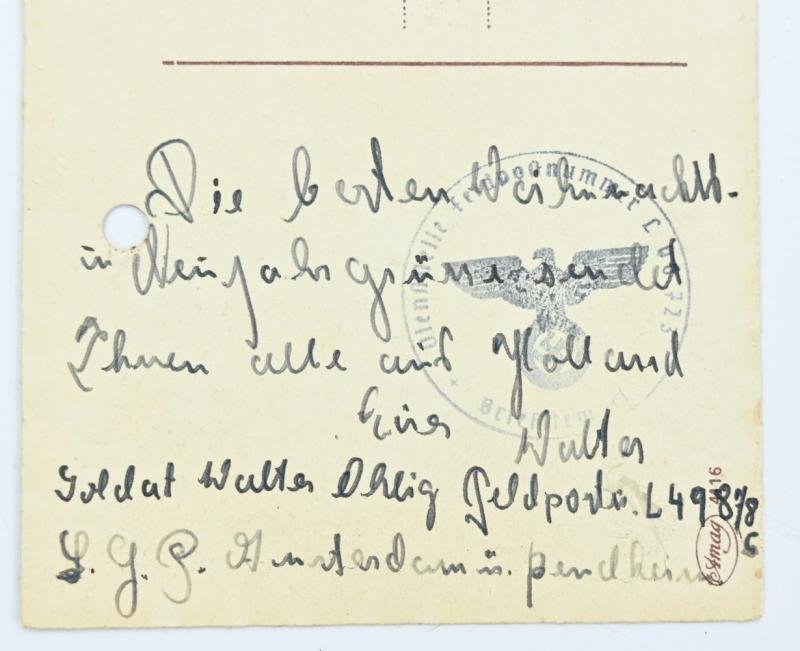 Die besten Weihnachts-
u. Neujahrsgrüsse sendet
Ihnen alle aus Holland
Euer Walter
Soldat Walter Ohlig Feldpostn. L 498
L. G. P. Amsterdam ü.
Dienststelle Feldpostnummer L
Amag